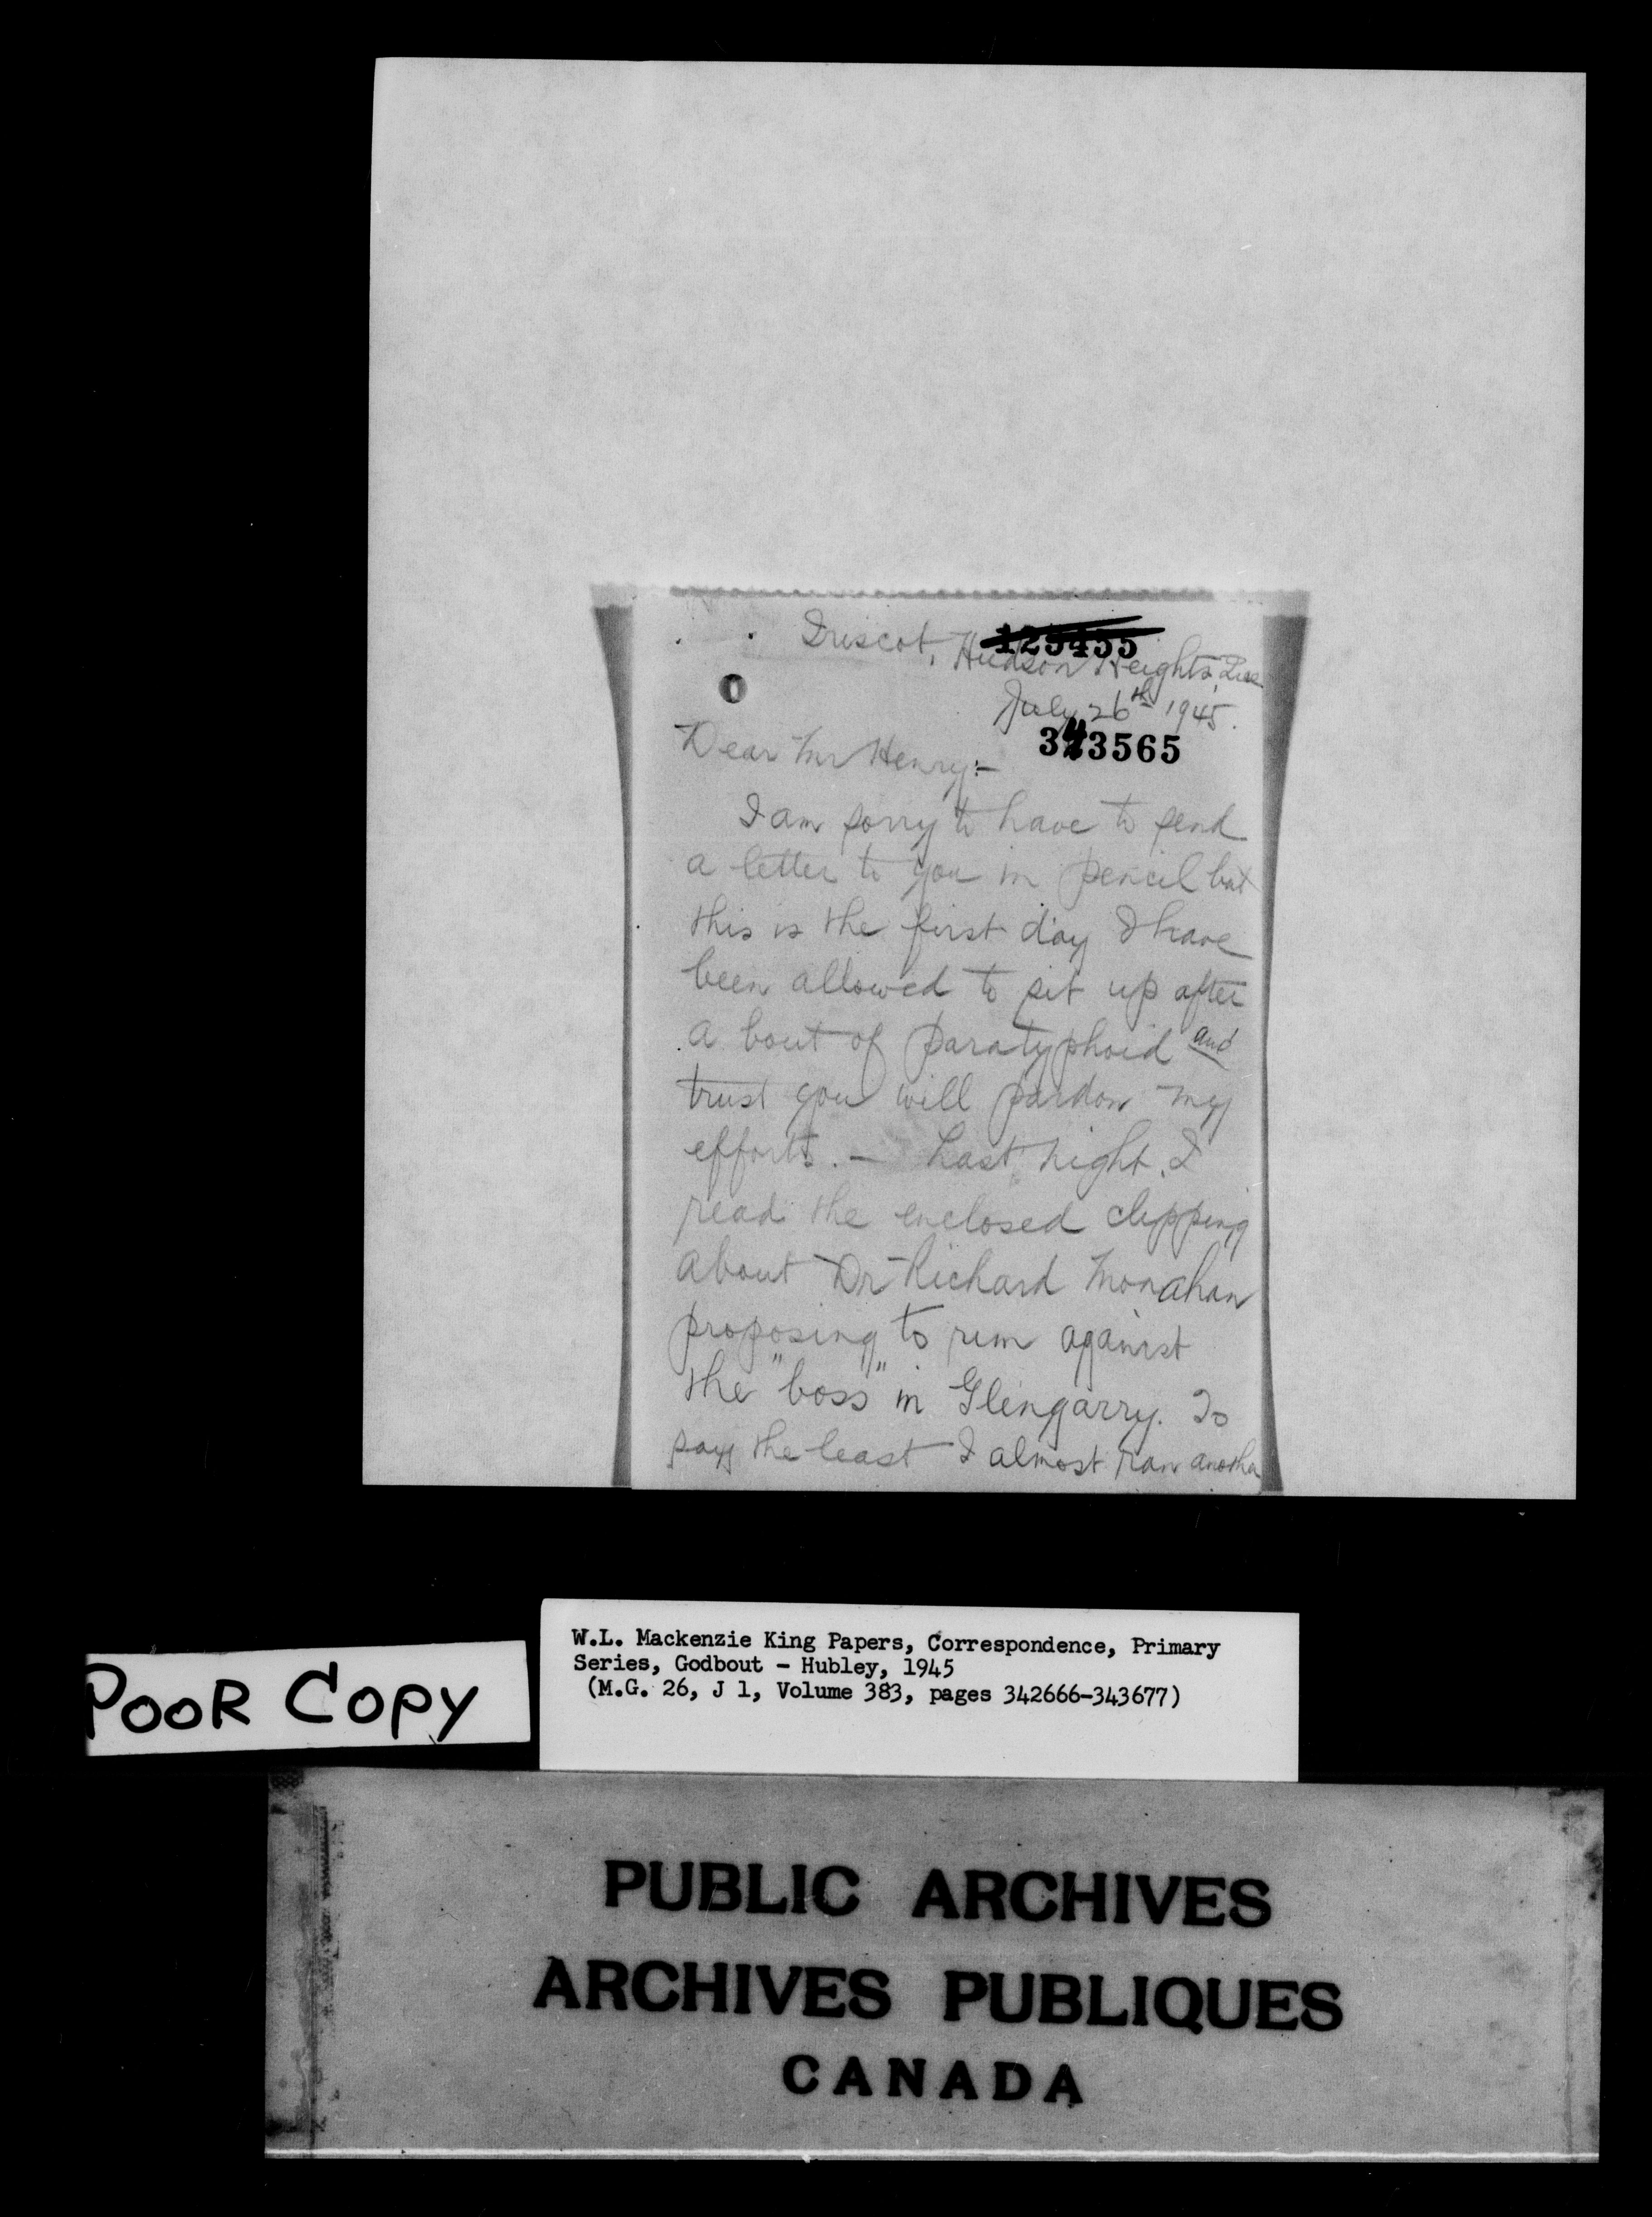 125455
Hudson Heights, Que
July 26th 1945.
343565
Dear Mr Henry:-
I am sorry to have to send
a letter to you in pencil but
this is the first day I have
been allowed to sit up after
a bout of paratyphoid and
trust you will pardon my
efforts. - Last night I
read the enclosed clipping
about Dr Richard Monahan
proposing to run against
the "boss" in Glengarry. To
say the least I almost ran another
POOR COPY
W.L. Mackenzie King Papers, Correspondence, Primary
Series, Godbout - Hubley, 1945
(M.G. 26, J 1, Volume 383, pages 342666-343677)
PUBLIC ARCHIVES
ARCHIVES PUBLIQUES
CANADA